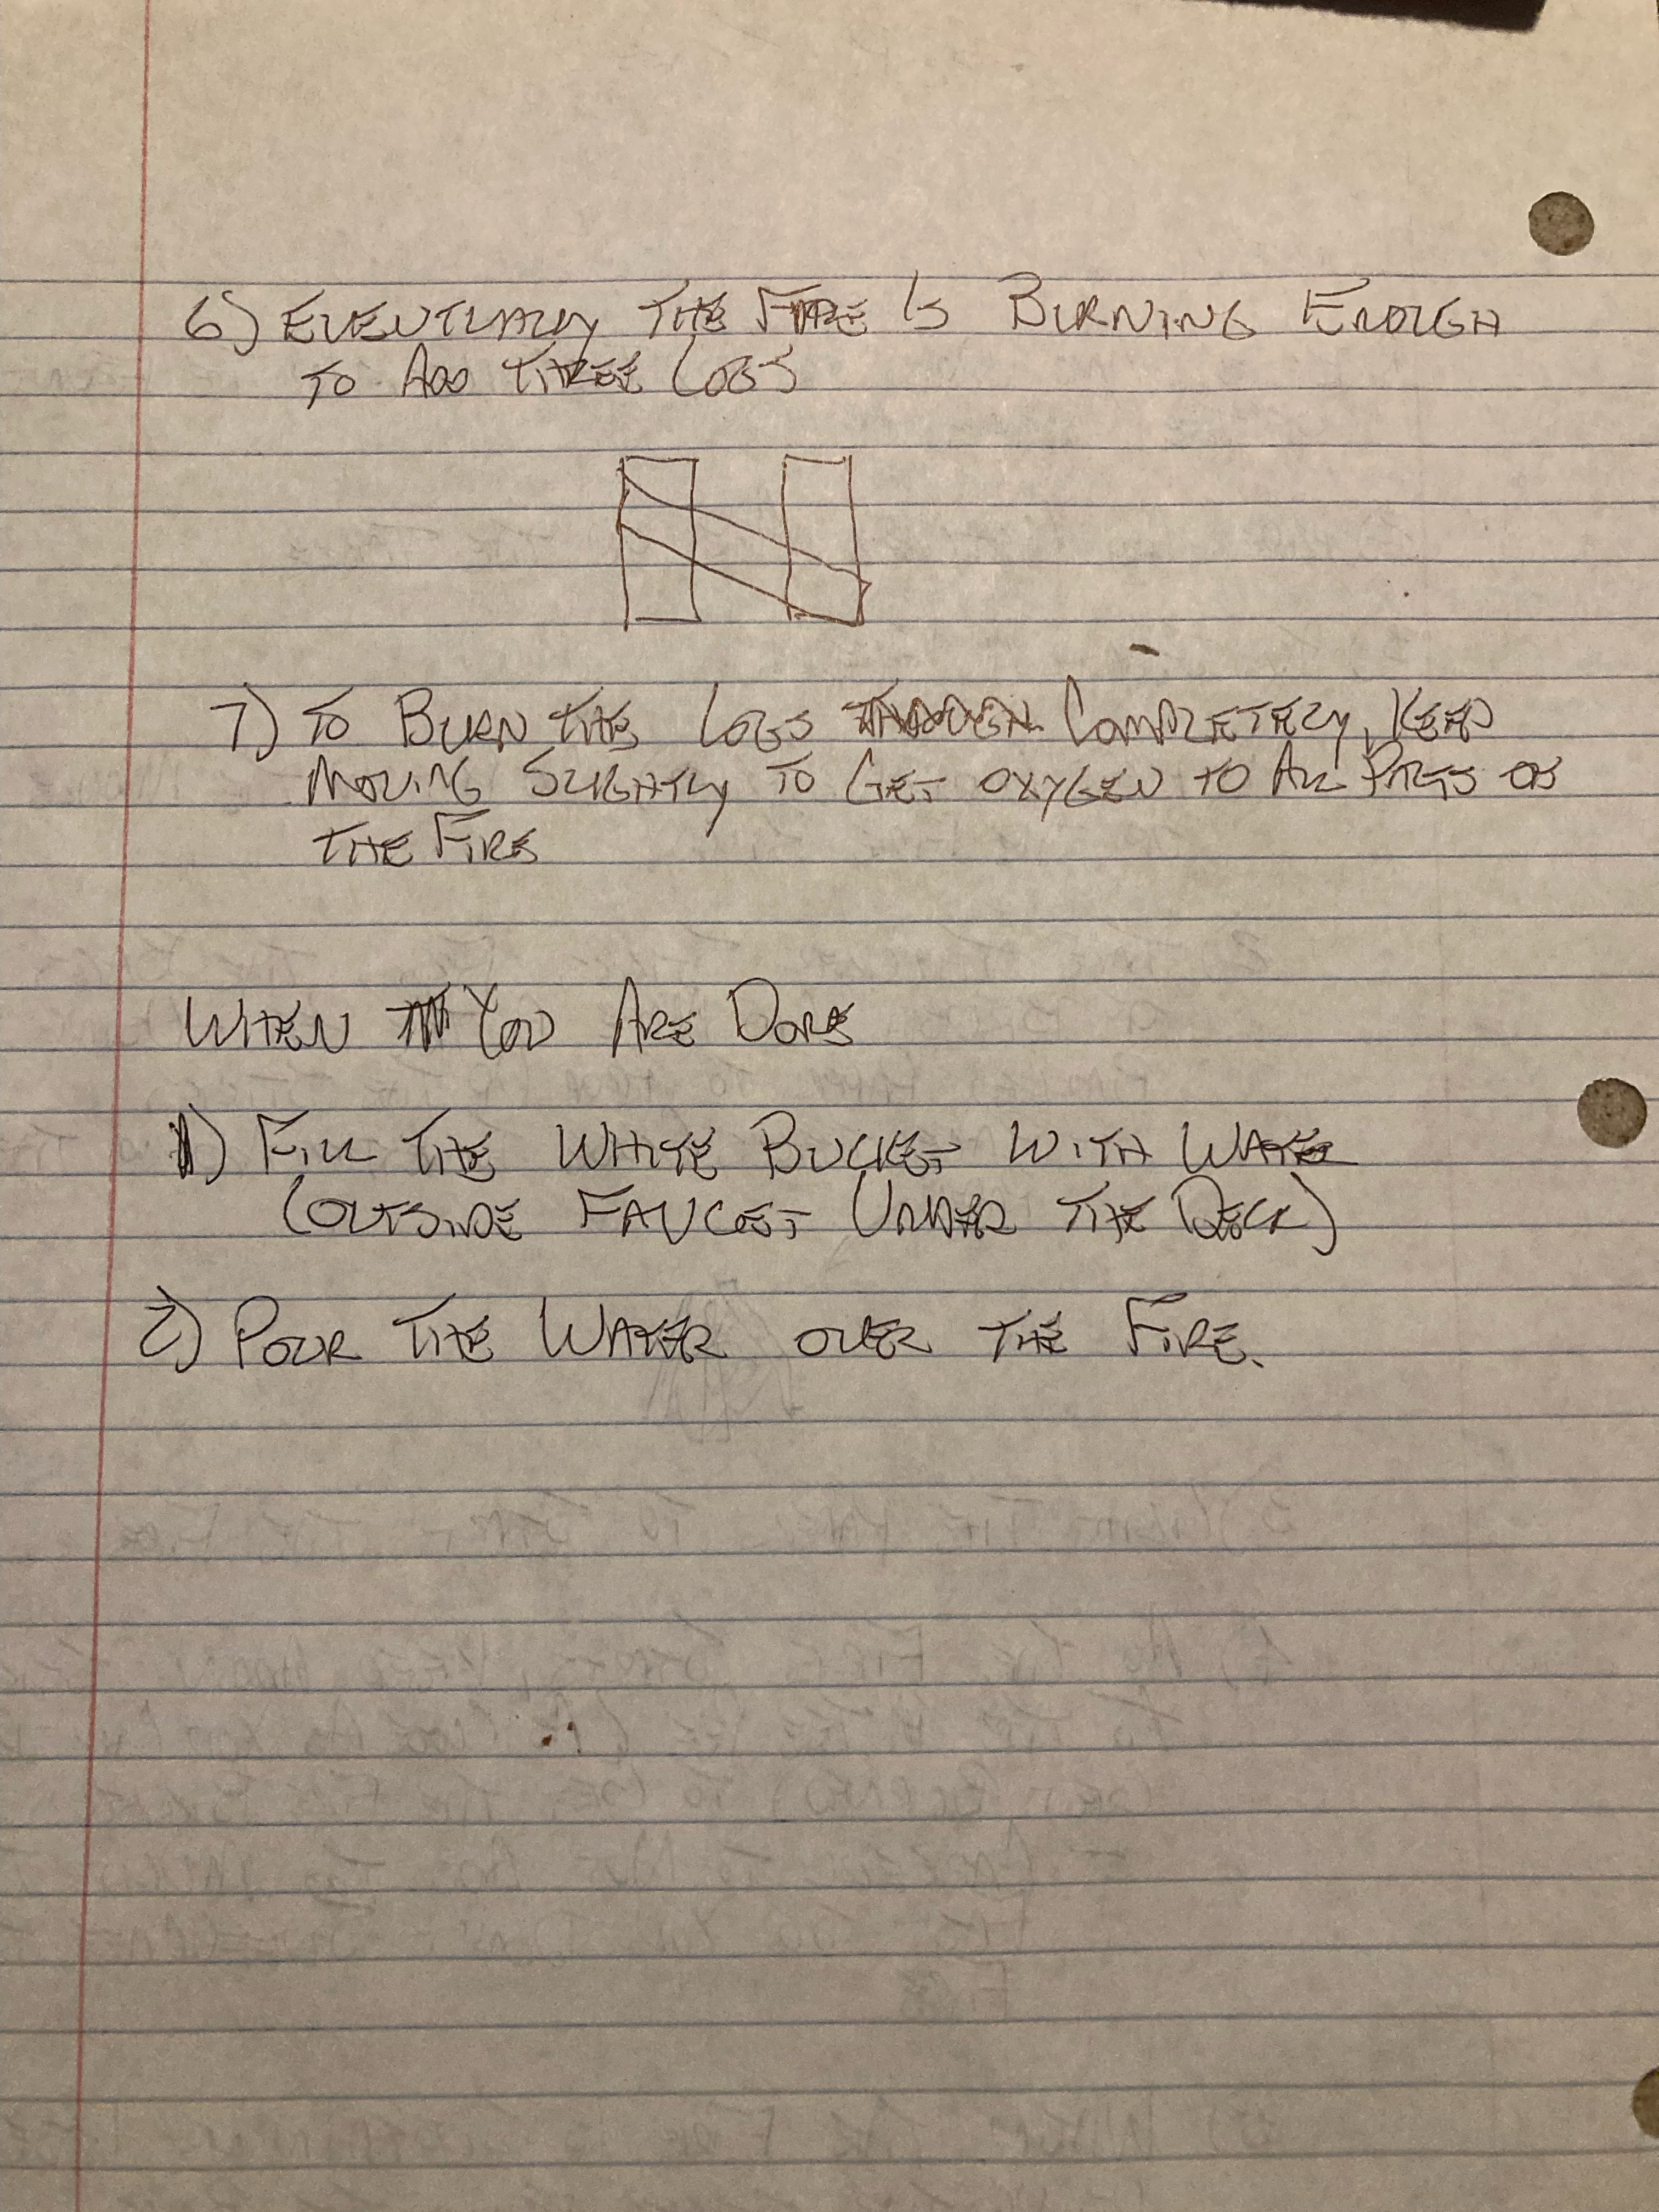 6) EVENTUALLY THE FIRE IS BURNING ENOUGH
TO ADD THREE LOGS
7) TO BURN THE LOGS COMPLETELY, KEEP
MOVING SLIGHTLY TO GET OXYGEN TO ALL PARTS OF
THE FIRE
WHEN YOU ARE DONE
1) FILL THE WHITE BUCKET WITH WATER
(OUTSIDE FAUCET UNDER THE DECK)
2) POUR THE WATER OVER THE FIRE.